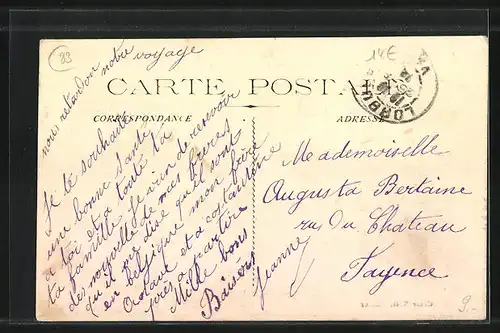 83
nous retardoir notre voyage
14E
CARTE POSTALE
CORRESPONDANCE
ADRESSE
LORGUES
VAR
Je te souhaite
une bonne santé
à toi et a toute ta
famille. Je vien de recevoir
des nouvelle de mes frères
qu'il me dise quel sont
en belgique mon frère
Octave et a
près a partire
Mille bons
Baisers
Jeanne
Mademoiselle
Augusta Bertaine
rue du Chateau
Fayence
9.-